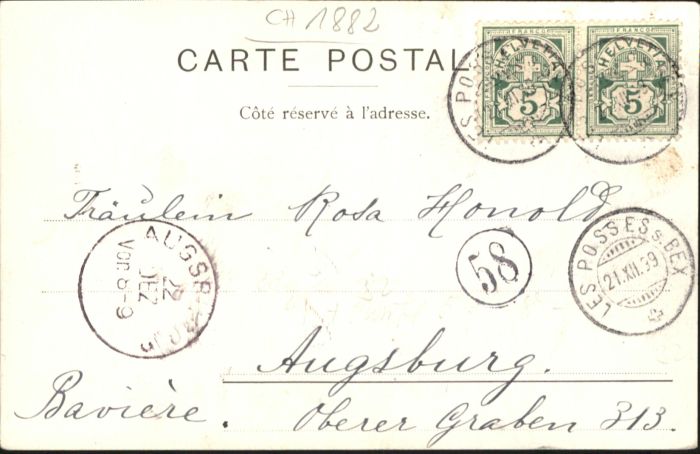 CH 1882
CARTE POSTAL
Côté réservé à l'adresse.
FRANCO FRANCO
HELVETIA HELVETIA
5 5
LES POSS
Fräulein Rosa Honold
AUGSB
22
DEZ
VOR. 8-9
58
LES POSSES s. BEX
21.XII.99
Augsburg.
Bavière. Oberer Graben 313.